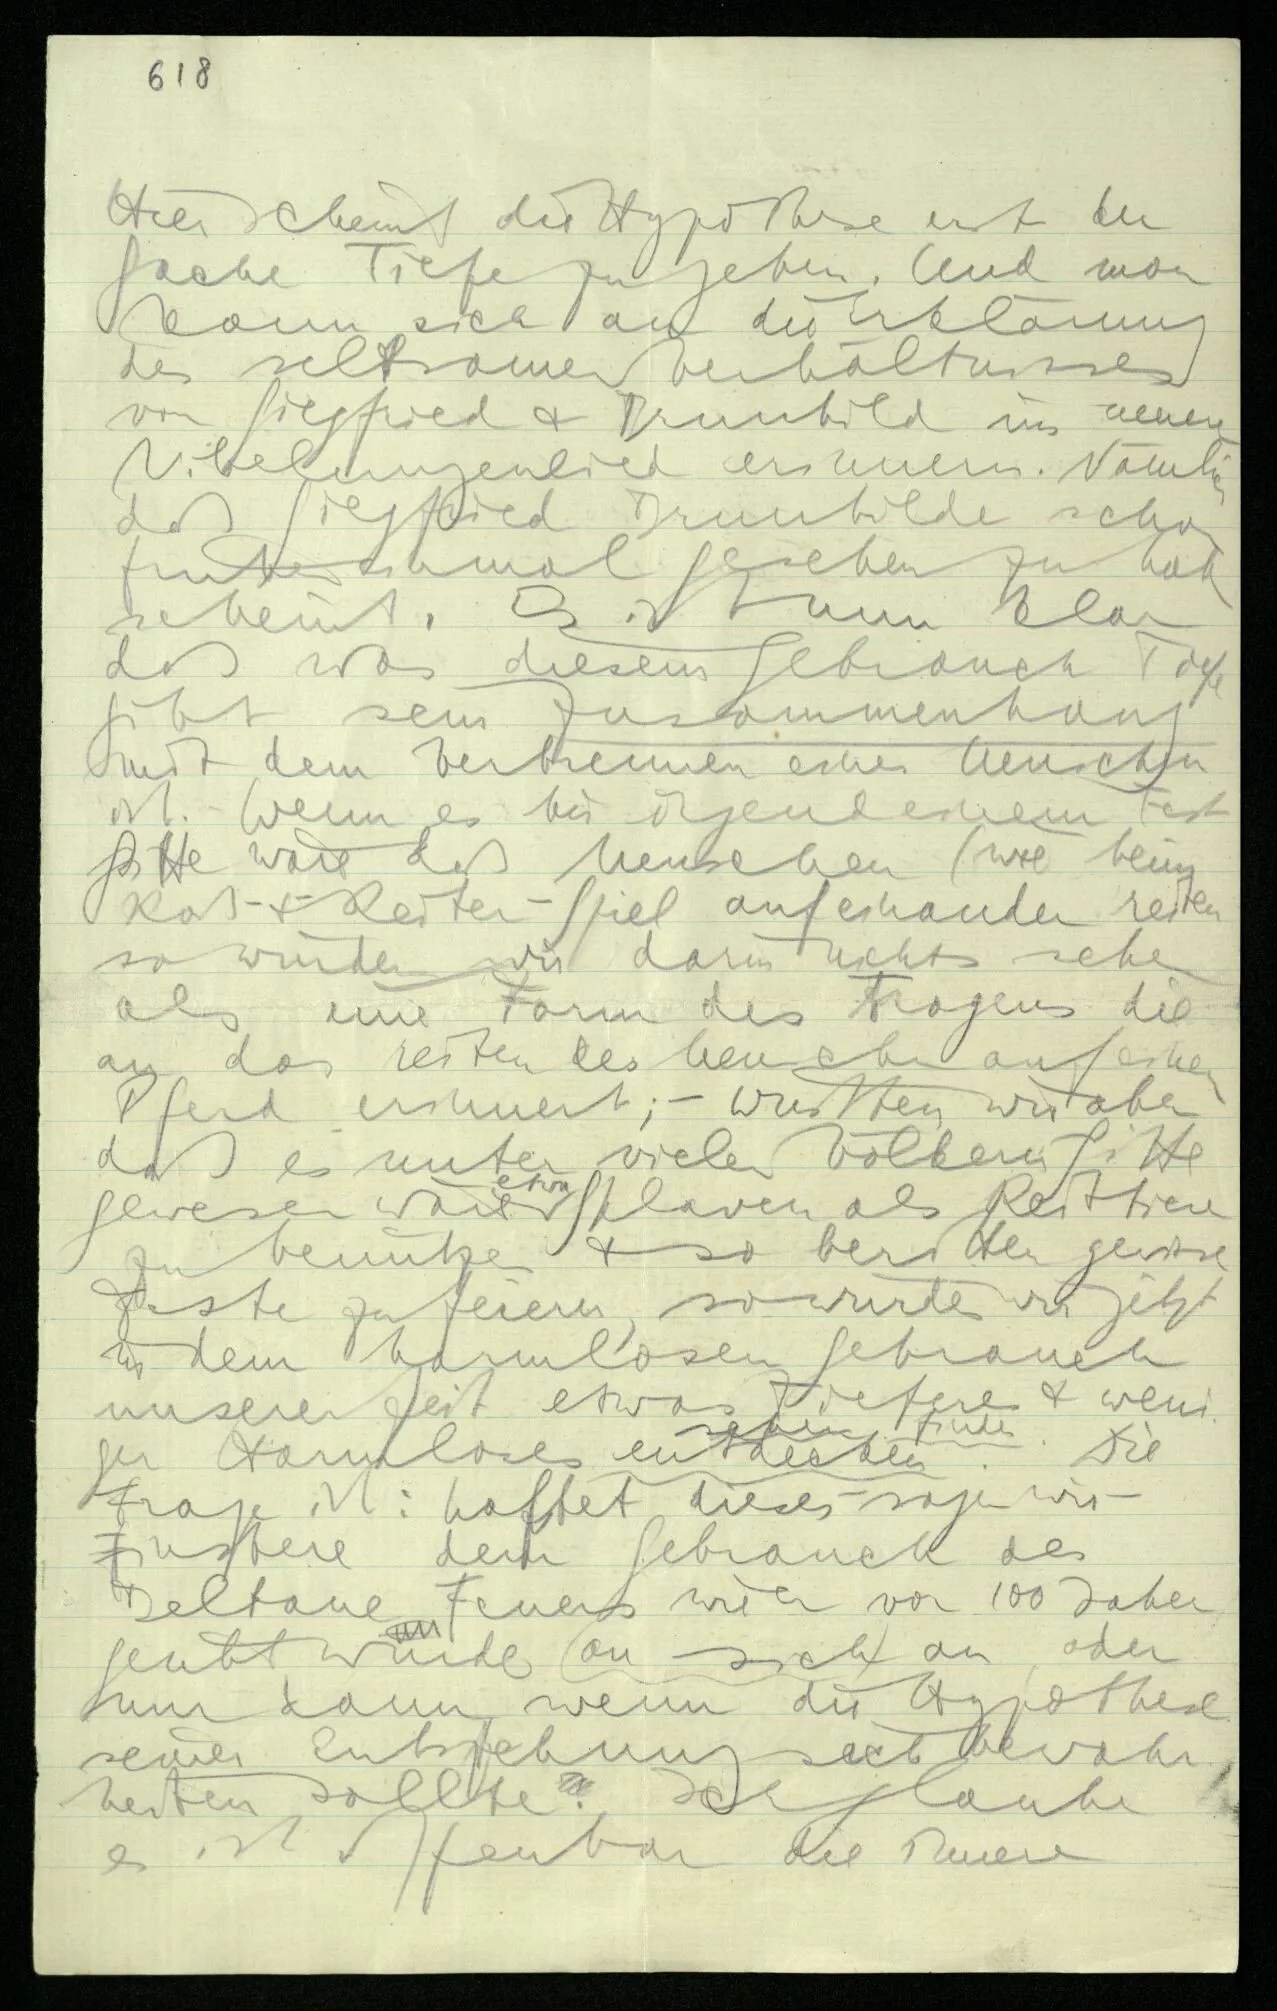 618
Hier scheint die Hypothese erst der
Sache Tiefe zu geben. Und man
kann sich an die Erklärung
des seltsamen Verhältnisses
von Siegfried & Brunhild im neuen
Nibelungenlied erinnern. Nämlich
daß Siegfried Brunhilde schon
früher einmal gesehen zu haben
scheint. Es ist nun klar
daß was diesem Gebrauch Tiefe
gibt sein Zusammenhang
mit dem Verbrennen eines Menschen
ist. – Wenn es bei irgendeinem Fest
Sitte wäre daß Menschen (wie beim
Roß-&-Reiter-Spiel aufeinander reiten
so würden wir darin nichts sehen
als eine Form des Tragens die
an das reiten des Menschen auf einem
Pferd erinnert; – wüßten wir aber
daß es unter vielen Völkern Sitte
gewesen wäre etwa Sklaven als Reittiere
zu benützen & so beritten gewisse
Feste zu feiern, so würden wir jetzt
in dem harmlosen Gebrauch
unserer Zeit etwas Tieferes & weni
ger Harmloses entdecken sehen finden. Die
Frage ist: haftet dieses – sagen wir –
Finstere dem Gebrauch des
Beltane Feuers wie er vor 100 Jahren
geübt wurde (an sich) an, oder
nur dann wenn die Hypothese
seiner Entstehung sich bewahr
heiten sollte? Ich glaube
es ist offenbar die innere